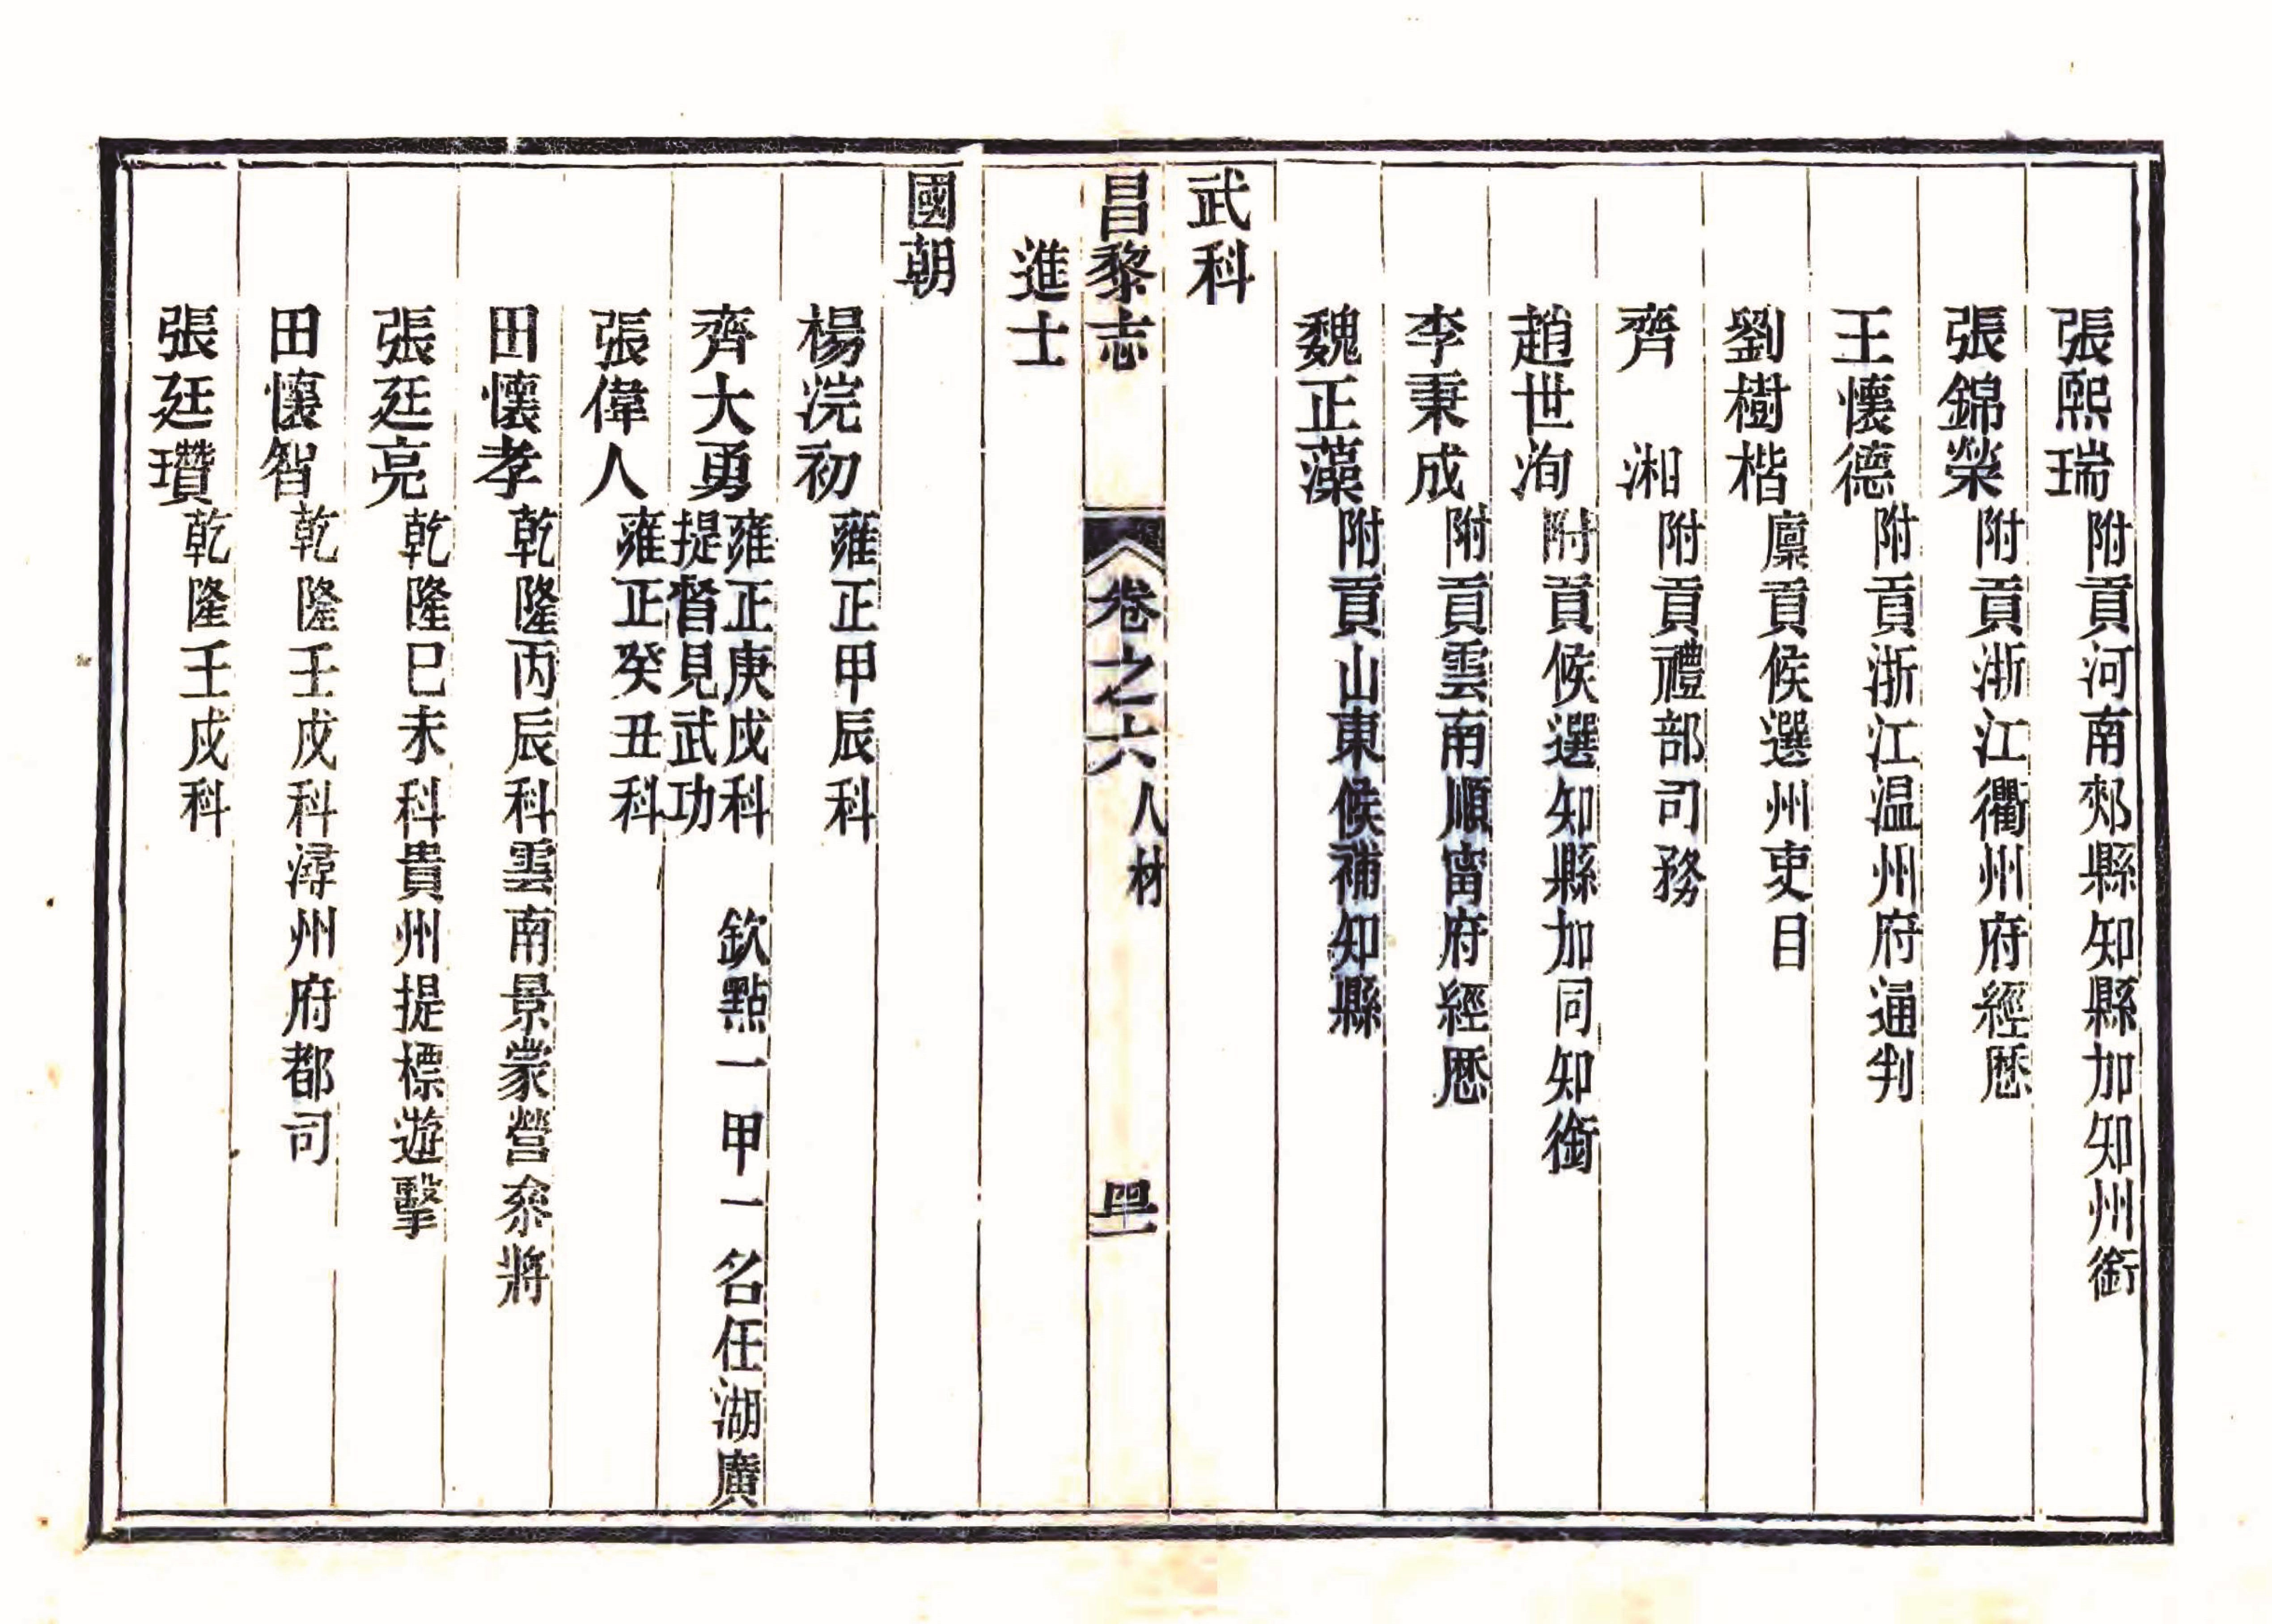 張熙瑞附貢河南郟縣知縣加知州銜
張錦榮附貢浙江衢州府經歷
王懷德附貢浙江温州府通判
劉樹楷廩貢候選州吏目
齊　湘附貢禮部司務
趙世洵附貢候選知縣加同知銜
李秉成附貢雲南順甯府經歷
魏正藻附貢山東候補知縣
武科
昌黎志　卷之六　人材　四十一
進士
國朝
楊浣初雍正甲辰科
齊大勇雍正庚戌科　欽點一甲一名任湖廣
提督見武功
張偉人雍正癸丑科
田懷孝乾隆丙辰科雲南景蒙營叅將
張廷亮乾隆巳未科貴州提標遊擊
田懷智乾隆壬戌科潯州府都司
張廷瓚乾隆壬戌科